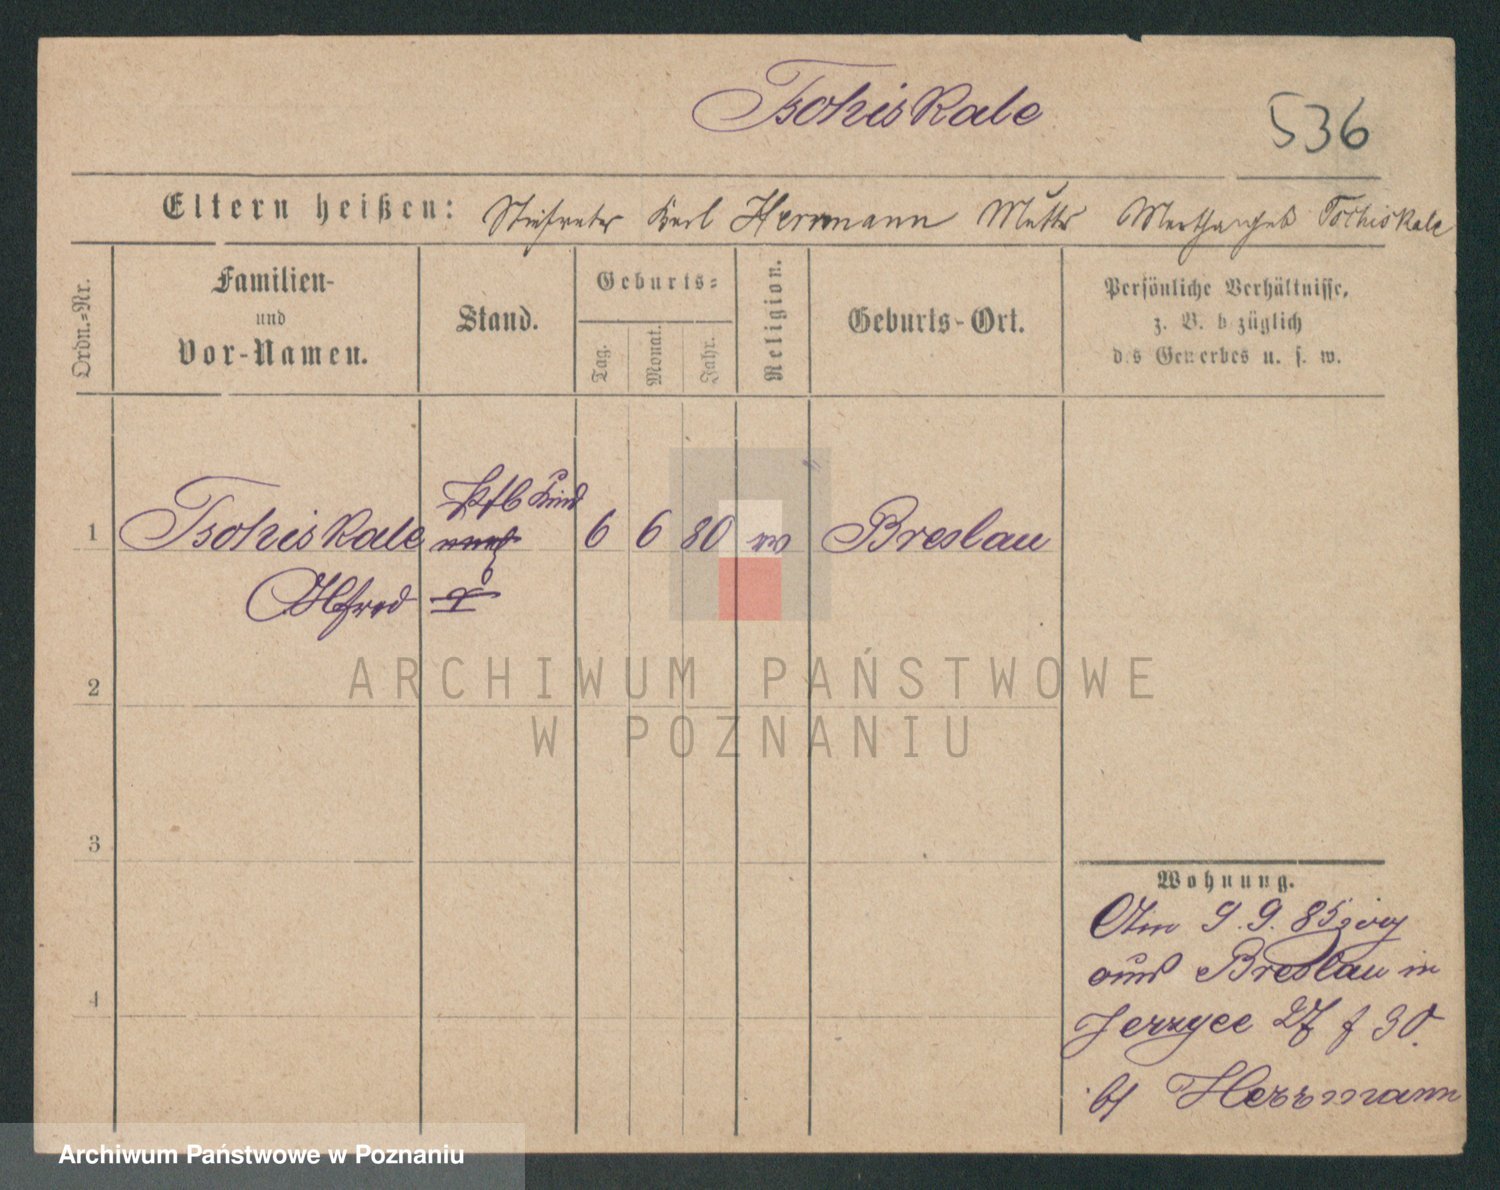 Tschiskale
536
Eltern heißen: Stiefvater Karl Herrmann Mutter Martha geb Tschiskale
Ordn.=Nr.
Familien-
und
Vor-Namen.
Stand.
Geburts=
Tag.
Monat.
Jahr.
Religion.
Geburts-Ort.
Persönliche Verhältnisse,
z. B. bezüglich
des Gewerbes u. s. w.
1 Tschiskale Kind 6 6 80 Breslau
Alfred
2
3
4
ARCHIWUM PAŃSTWOWE
W POZNANIU
Wohnung.
Am 9. 9. 85 zog
aus Breslau in
Jerzyce 27 f 30.
bei Herrmann
Archiwum Państwowe w Poznaniu